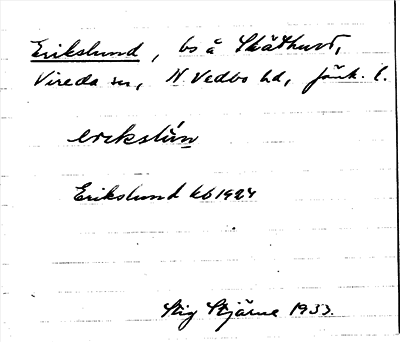 Erikslund, bs å Skäthult,
Vireda sn, N Vedbo hd, Jönk. l.
erikslún
Erikslund kb 1924
Stig Stjärne 1933.